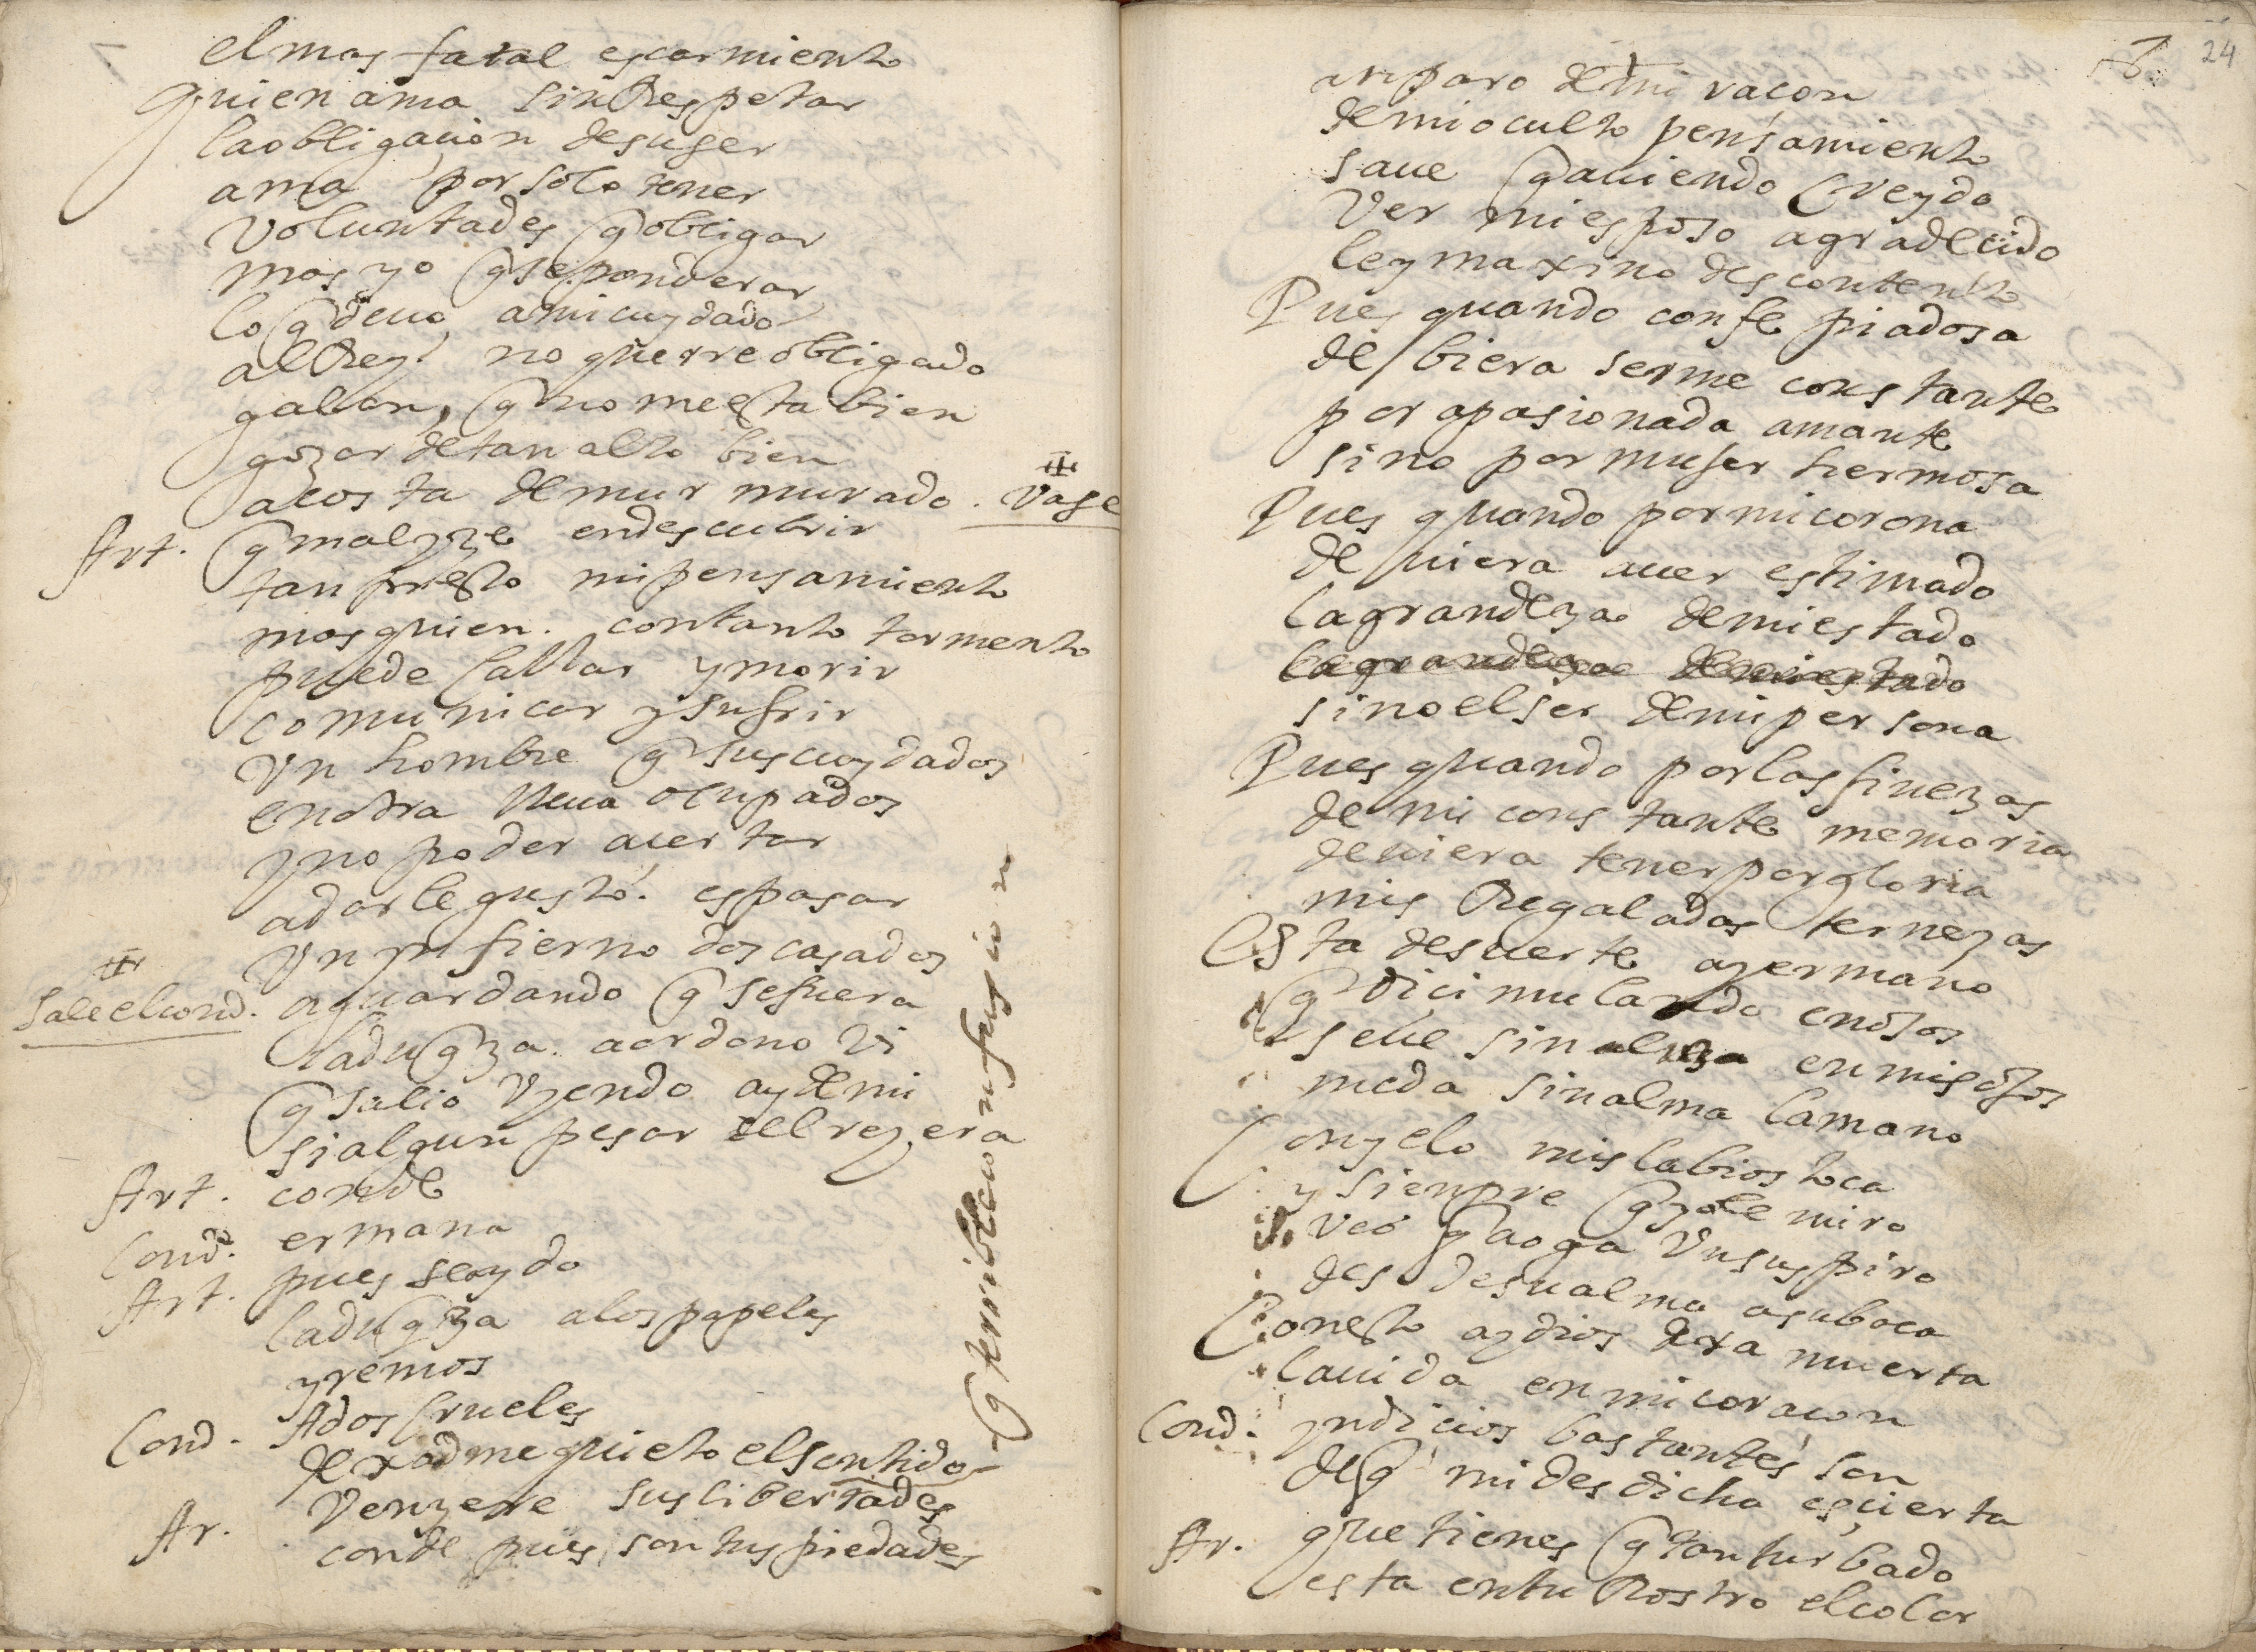 el mas fatal escarmiento
quien ama sin Respetar
la obligacion de su ser
ama por solo tener
Voluntades q̃ obligar
mas yo q̃ se ponderar
lo q̃ deuo a mi cuydado
al Rey no querre obligado
galan, q̃ no me esta bien
gozar de tan alto bien
a costa de mur murado. Vase
Art. q̃ mal yze en descubrir
tan presto mi pensamiento
mas quien. con tanto tormento
puede callar y morir
comunicar y sufrir
Vn hombre q̃ sus cuydados
en otra lleua ocupados
y no poder acertar
a darle gusto. es pasar
Vn ynfierno dos casados
Sale el cond. aguardando q̃ se fuera
la duq̃za. a ordono Vi
q̃ salio Vyendo ay de mi
si algun pesar del rey era
Art. conde
Cond. ermana
Art. pues se a ydo
la duq̃za a los papeles
yremos
Cond. Ados crueles
dexadme quieto el sentido
Venzere sus libertades
Ar. conde pues son tus piedades
q̃ terrible confusion
24
amparo de mi racon
de mi oculto pensamiento
saue q̃ auiendo creydo
Ver mi esposo agradecido
ley maxino descontento
Pues quando con fe piadosa
debiera serme constante
por apasionada amante
sino por muger hermosa
Pues quando por mi corona
deuiera auer estimado
la grandeza de mi estado
la grandeza de mi estado
sino el ser de mi persona
Pues quando por las finezas
de mi constante memoria
deuiera tener por gloria
mis Regaladas ternezas
Esta de suerte ay ermano
q̃ dicimulando enojos
se ve sin alma en mis ojos
me da sin alma la mano
Con yelo mis labios toca
y siempre q̃ yo le miro
veo q̃ aoga Vn suspiro
des de su alma a su boca
Con esto ay dios dexa muerta
la uida en mi coracon
Cond. yndicios bastantes son
de q̃ mi desdicha es cierta
Ar. que tienes q̃ tan turbado
esta en tu Rostro el color